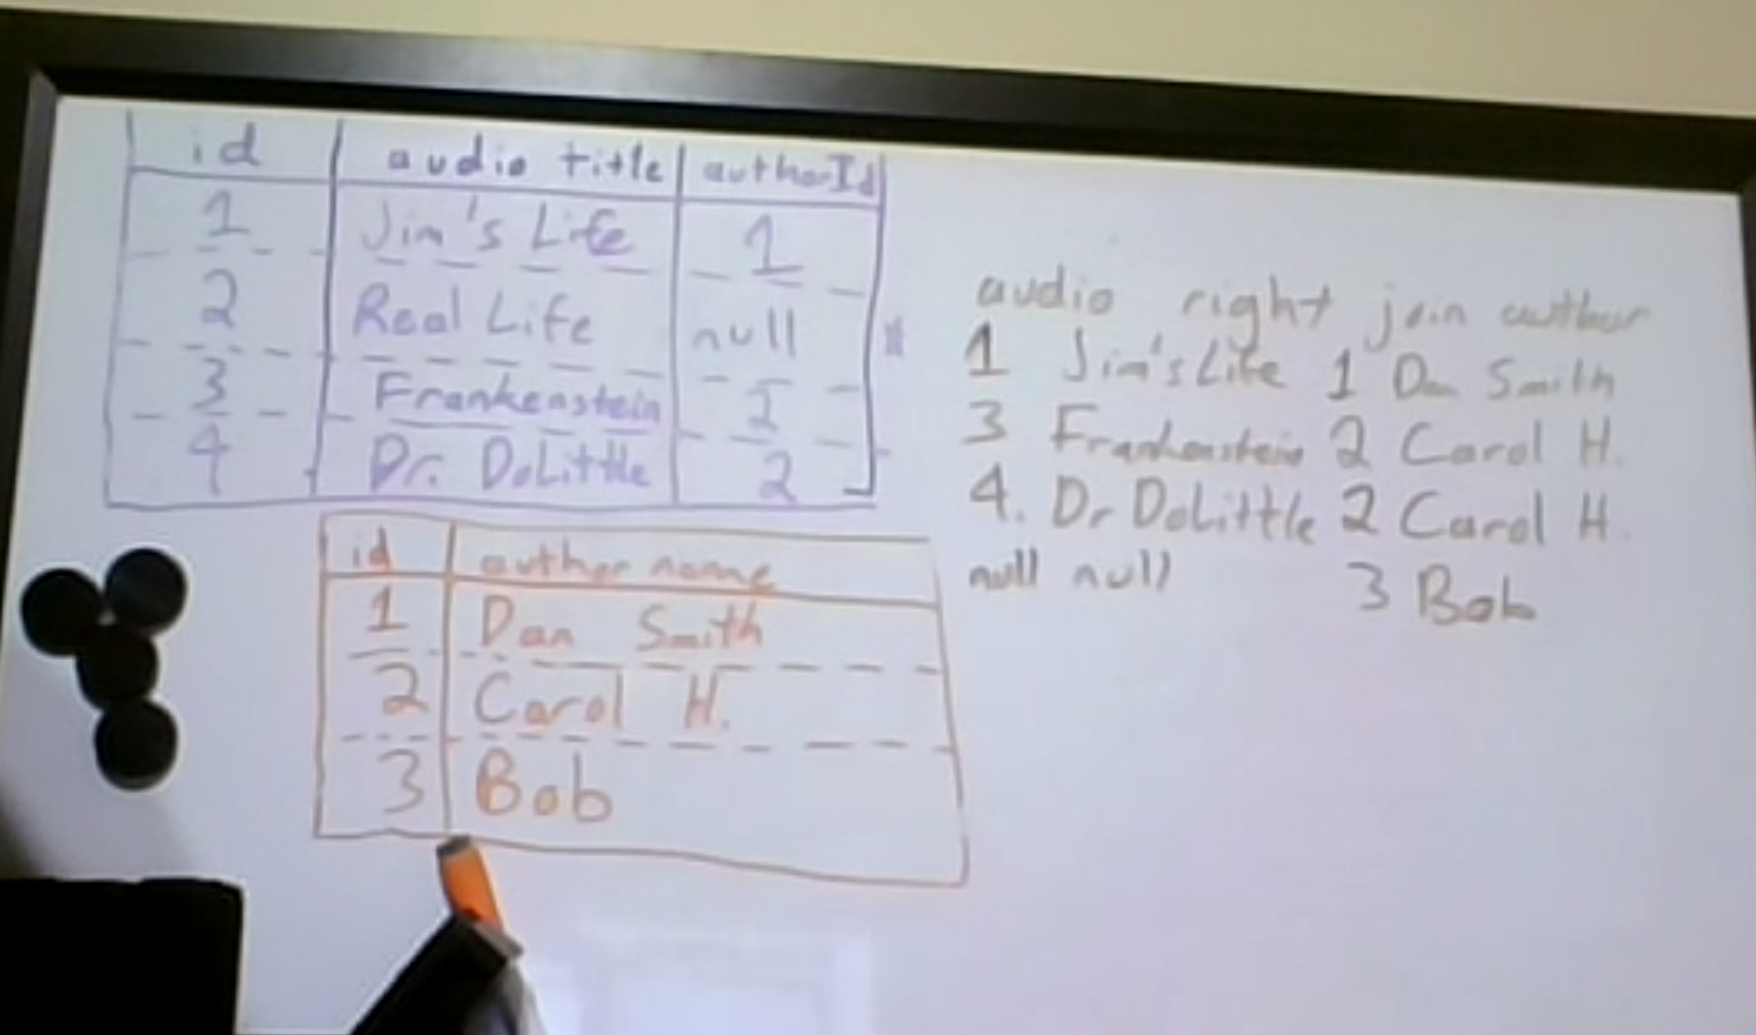 id audio title authorId
1 Jim's Life 1
2 Real Life null
3 Frankenstein 2
4 Dr. DoLittle 2
id author name
1 Dan Smith
2 Carol H.
3 Bob
audio right join author
1 Jim's Life 1 Dan Smith
3 Frankenstein 2 Carol H.
4. Dr DoLittle 2 Carol H.
null null 3 Bob